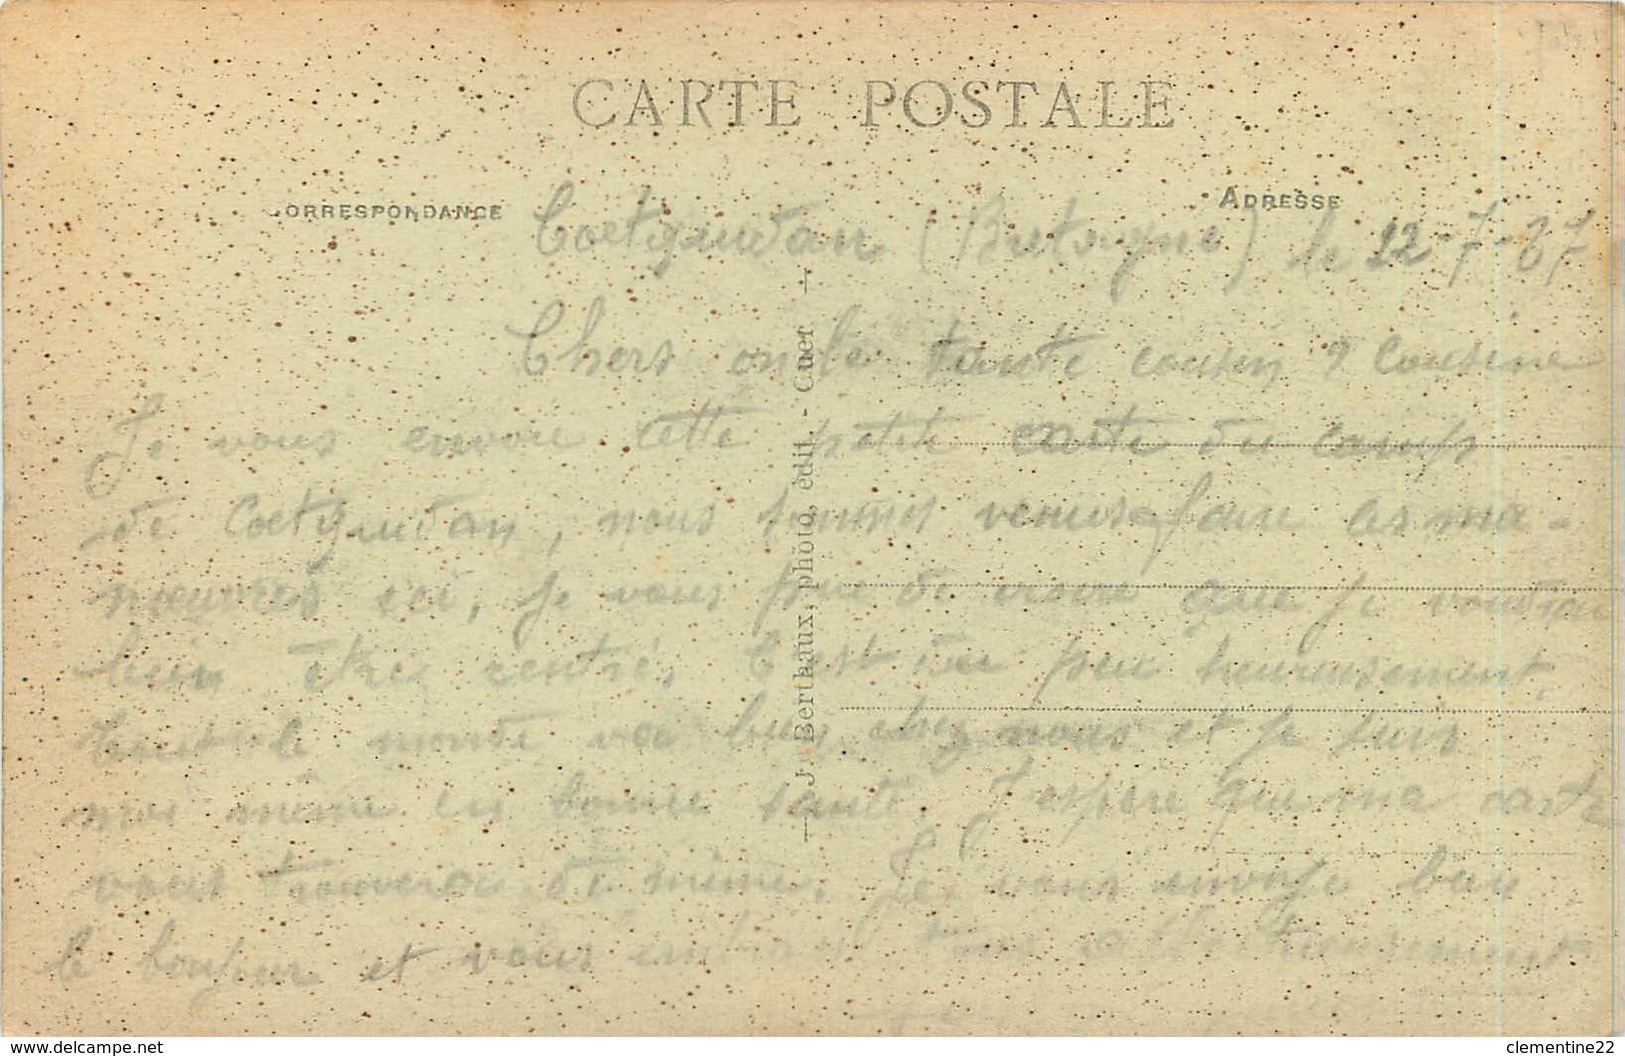 CARTE POSTALE
CORRESPONDANCE
ADRESSE
Coetquidan (Bretagne) le 22-7-37
Chers oncle tante cousin & Cousine
Je vous envoie cette petite carte du camp
de Coetquidan, nous sommes venus faire les ma-
noeuvres ici, je vous prie de croire que je voudrai
bien être rentré, C'est dur peu heureusement.
Tout le monde va bien chez nous et je suis
moi même en bonne santé. J'espère que ma carte
vous trouvera de même. Je vous envoye bien
le bonjour et vous embrasse tous affectueusement
J. Berthaux, photo, édit. - Guer
www.delcampe.net
clementine22